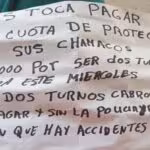 S TOCA PAGAR
CUOTA DE PROTEC
SUS CHAMACOS
000 POR SER DOS TU
ESTE MIERCOLES
DOS TURNOS CABRO
AGAR Y SIN LA POLICIA
N QUE HAY ACCIDENTES